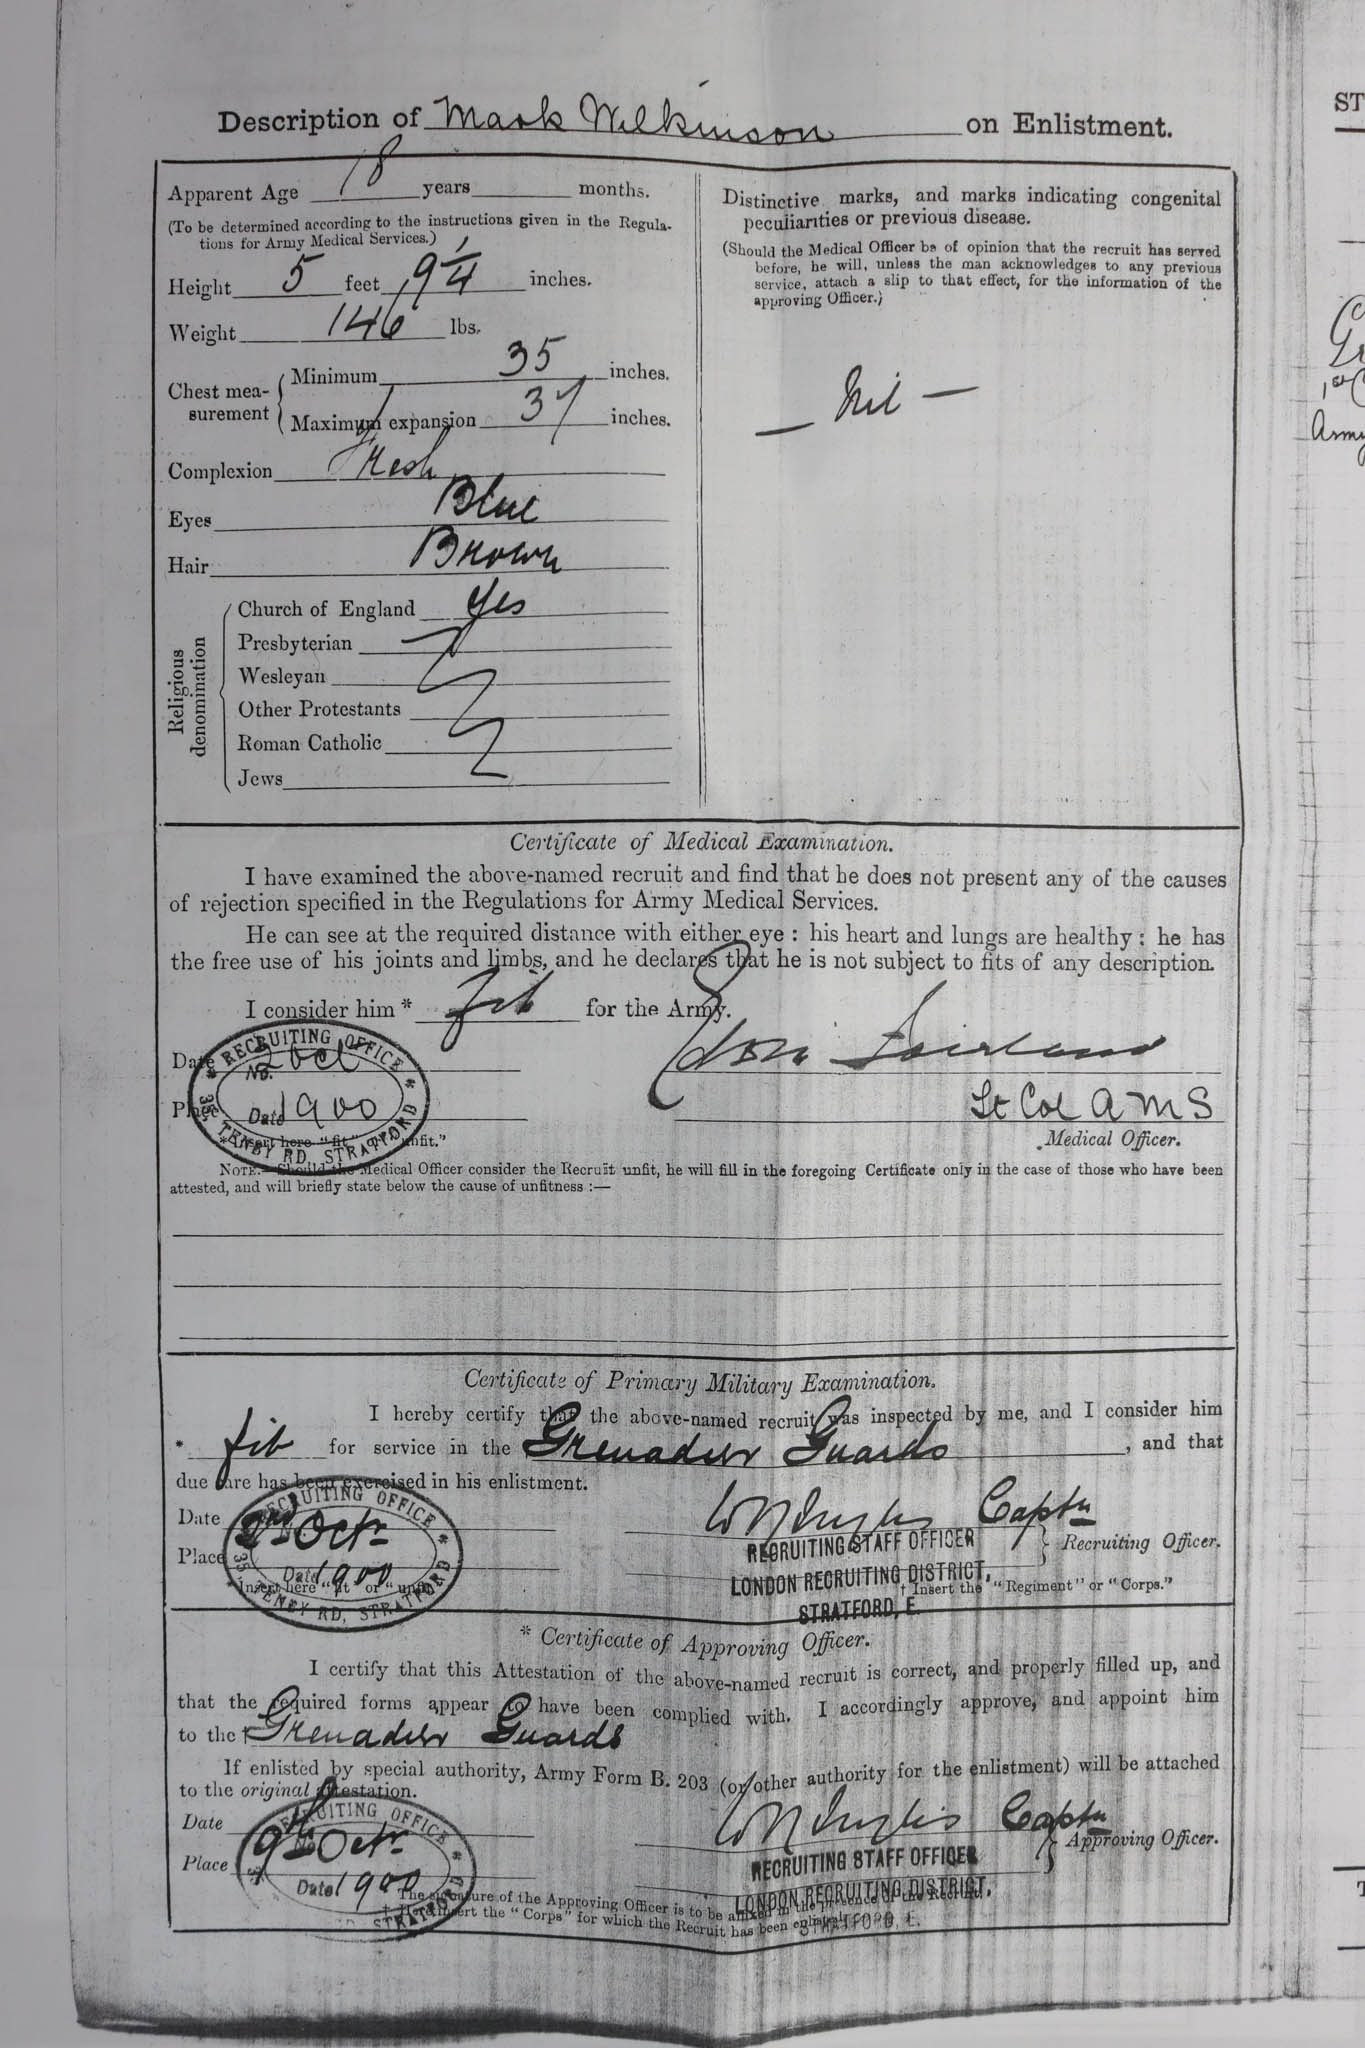 Description of Mark Wilkinson on Enlistment.
Apparent Age 18 years months.
(To be determined according to the instructions given in the Regula-
tions for Army Medical Services.)
Height 5 feet 9 1/4 inches.
Weight 146 lbs.
Chest mea-
surement
Minimum 35 inches.
Maximum expansion 37 inches.
Complexion Fresh
Eyes Blue
Hair Brown
Religious
denomination
Church of England Yes
Presbyterian
Wesleyan
Other Protestants
Roman Catholic
Jews
Distinctive marks, and marks indicating congenital
peculiarities or previous disease.
(Should the Medical Officer be of opinion that the recruit has served
before, he will, unless the man acknowledges to any previous
service, attach a slip to that effect, for the information of the
approving Officer.)
— Nil —
Certificate of Medical Examination.
I have examined the above-named recruit and find that he does not present any of the causes
of rejection specified in the Regulations for Army Medical Services.
He can see at the required distance with either eye : his heart and lungs are healthy : he has
the free use of his joints and limbs, and he declares that he is not subject to fits of any description.
I consider him * fit for the Army.
RECRUITING OFFICE
Date 2 Oct
No.
Place
Date 1900
35, TENBY RD, STRATFORD
*Insert here "fit" or "unfit."
Lt Col A M S
Medical Officer.
NOTE.—Should the Medical Officer consider the Recruit unfit, he will fill in the foregoing Certificate only in the case of those who have been
attested, and will briefly state below the cause of unfitness :—
Certificate of Primary Military Examination.
I hereby certify that the above-named recruit was inspected by me, and I consider him
* fit for service in the Grenadier Guards, and that
due care has been exercised in his enlistment.
RECRUITING OFFICE
Date 2nd Octr
Place
Date 1900
35, TENBY RD, STRATFORD
*Insert here "fit" or "unfit."
Captn
RECRUITING STAFF OFFICER
Recruiting Officer.
LONDON RECRUITING DISTRICT,
† Insert the "Regiment" or "Corps."
STRATFORD, E.
* Certificate of Approving Officer.
I certify that this Attestation of the above-named recruit is correct, and properly filled up, and
that the required forms appear to have been complied with. I accordingly approve, and appoint him
to the † Grenadier Guards
If enlisted by special authority, Army Form B. 203 (or other authority for the enlistment) will be attached
to the original attestation.
RECRUITING OFFICE
Date 9th Octr
Place
Date 1900
STRATFORD
Captn
Approving Officer.
RECRUITING STAFF OFFICER
LONDON RECRUITING DISTRICT,
STRATFORD, E.
The signature of the Approving Officer is to be affixed in the presence of the Recruit.
† Here insert the "Corps" for which the Recruit has been enlisted.
ST
1st
Army